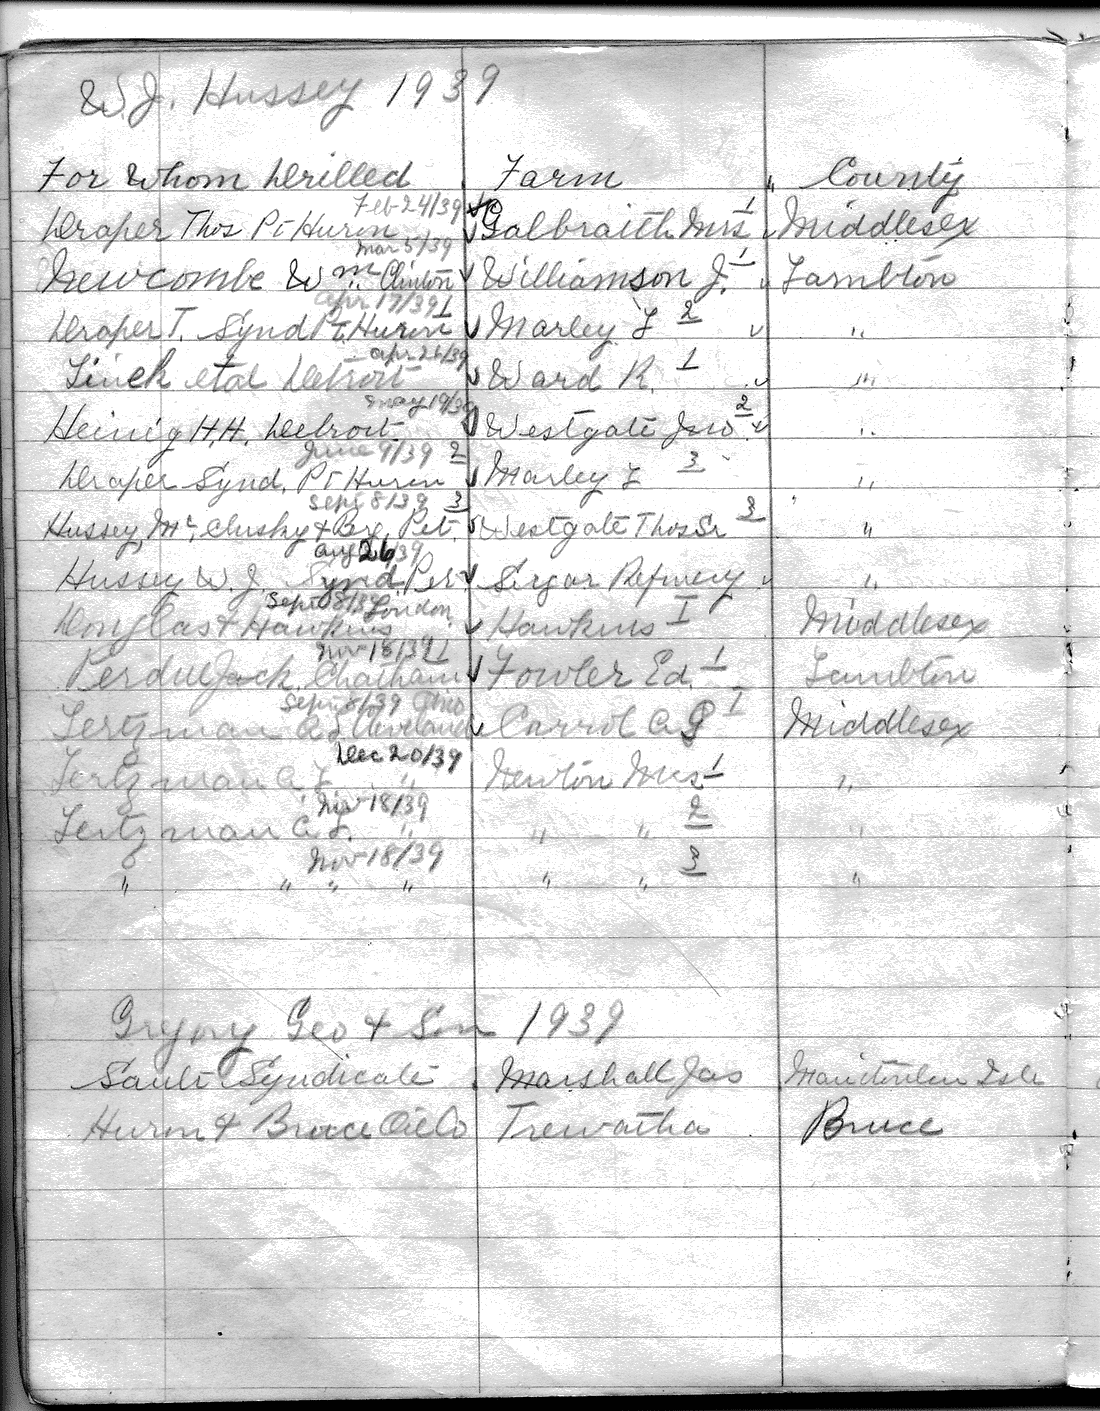 W.J. Hussey 1939
For Whom Drilled Farm County
Feb 24/39
Draper Thos Pt Huron Galbraith Mrs 1 Middlesex
Mar 5/39
Newcombe Wm Clinton Williamson J. 1 Lambton
Apr 17/39 1
Draper T. Synd Pt Huron Marley L 2 "
Apr 26/39
Linck etal Detroit Ward R. 1 "
May 19/39
Heinig H.H. Detroit Westgate Jno 2 "
June 9/39 2
Draper Synd. Pt Huron Marley L 3 "
Sept 8/39 3
Hussey, McClusky & Pet. Westgate Thos Sr 3 "
Aug 26/39
Hussey W.J. Synd. Pet. Refinery "
Sept 8/39 London
Douglas & Hawkins Hawkins I Middlesex
Nov 18/39 1
Perdue Jack Chatham Fowler Ed. 1 Lambton
Sept 8/39 Ohio
Lertzman A.L. Cleveland Carrol A I Middlesex
Dec 20/39
Lertzman A.L. " Newton Mrs 1 "
Nov 18/39
Lertzman A.L. " " " 2 "
Nov 18/39
" " " " " " 3 "
Gregory Geo & Son 1939
Sault Syndicate Marshall Jas Manitoulin Isle
Huron & Bruce Oil Co Trewatha Bruce